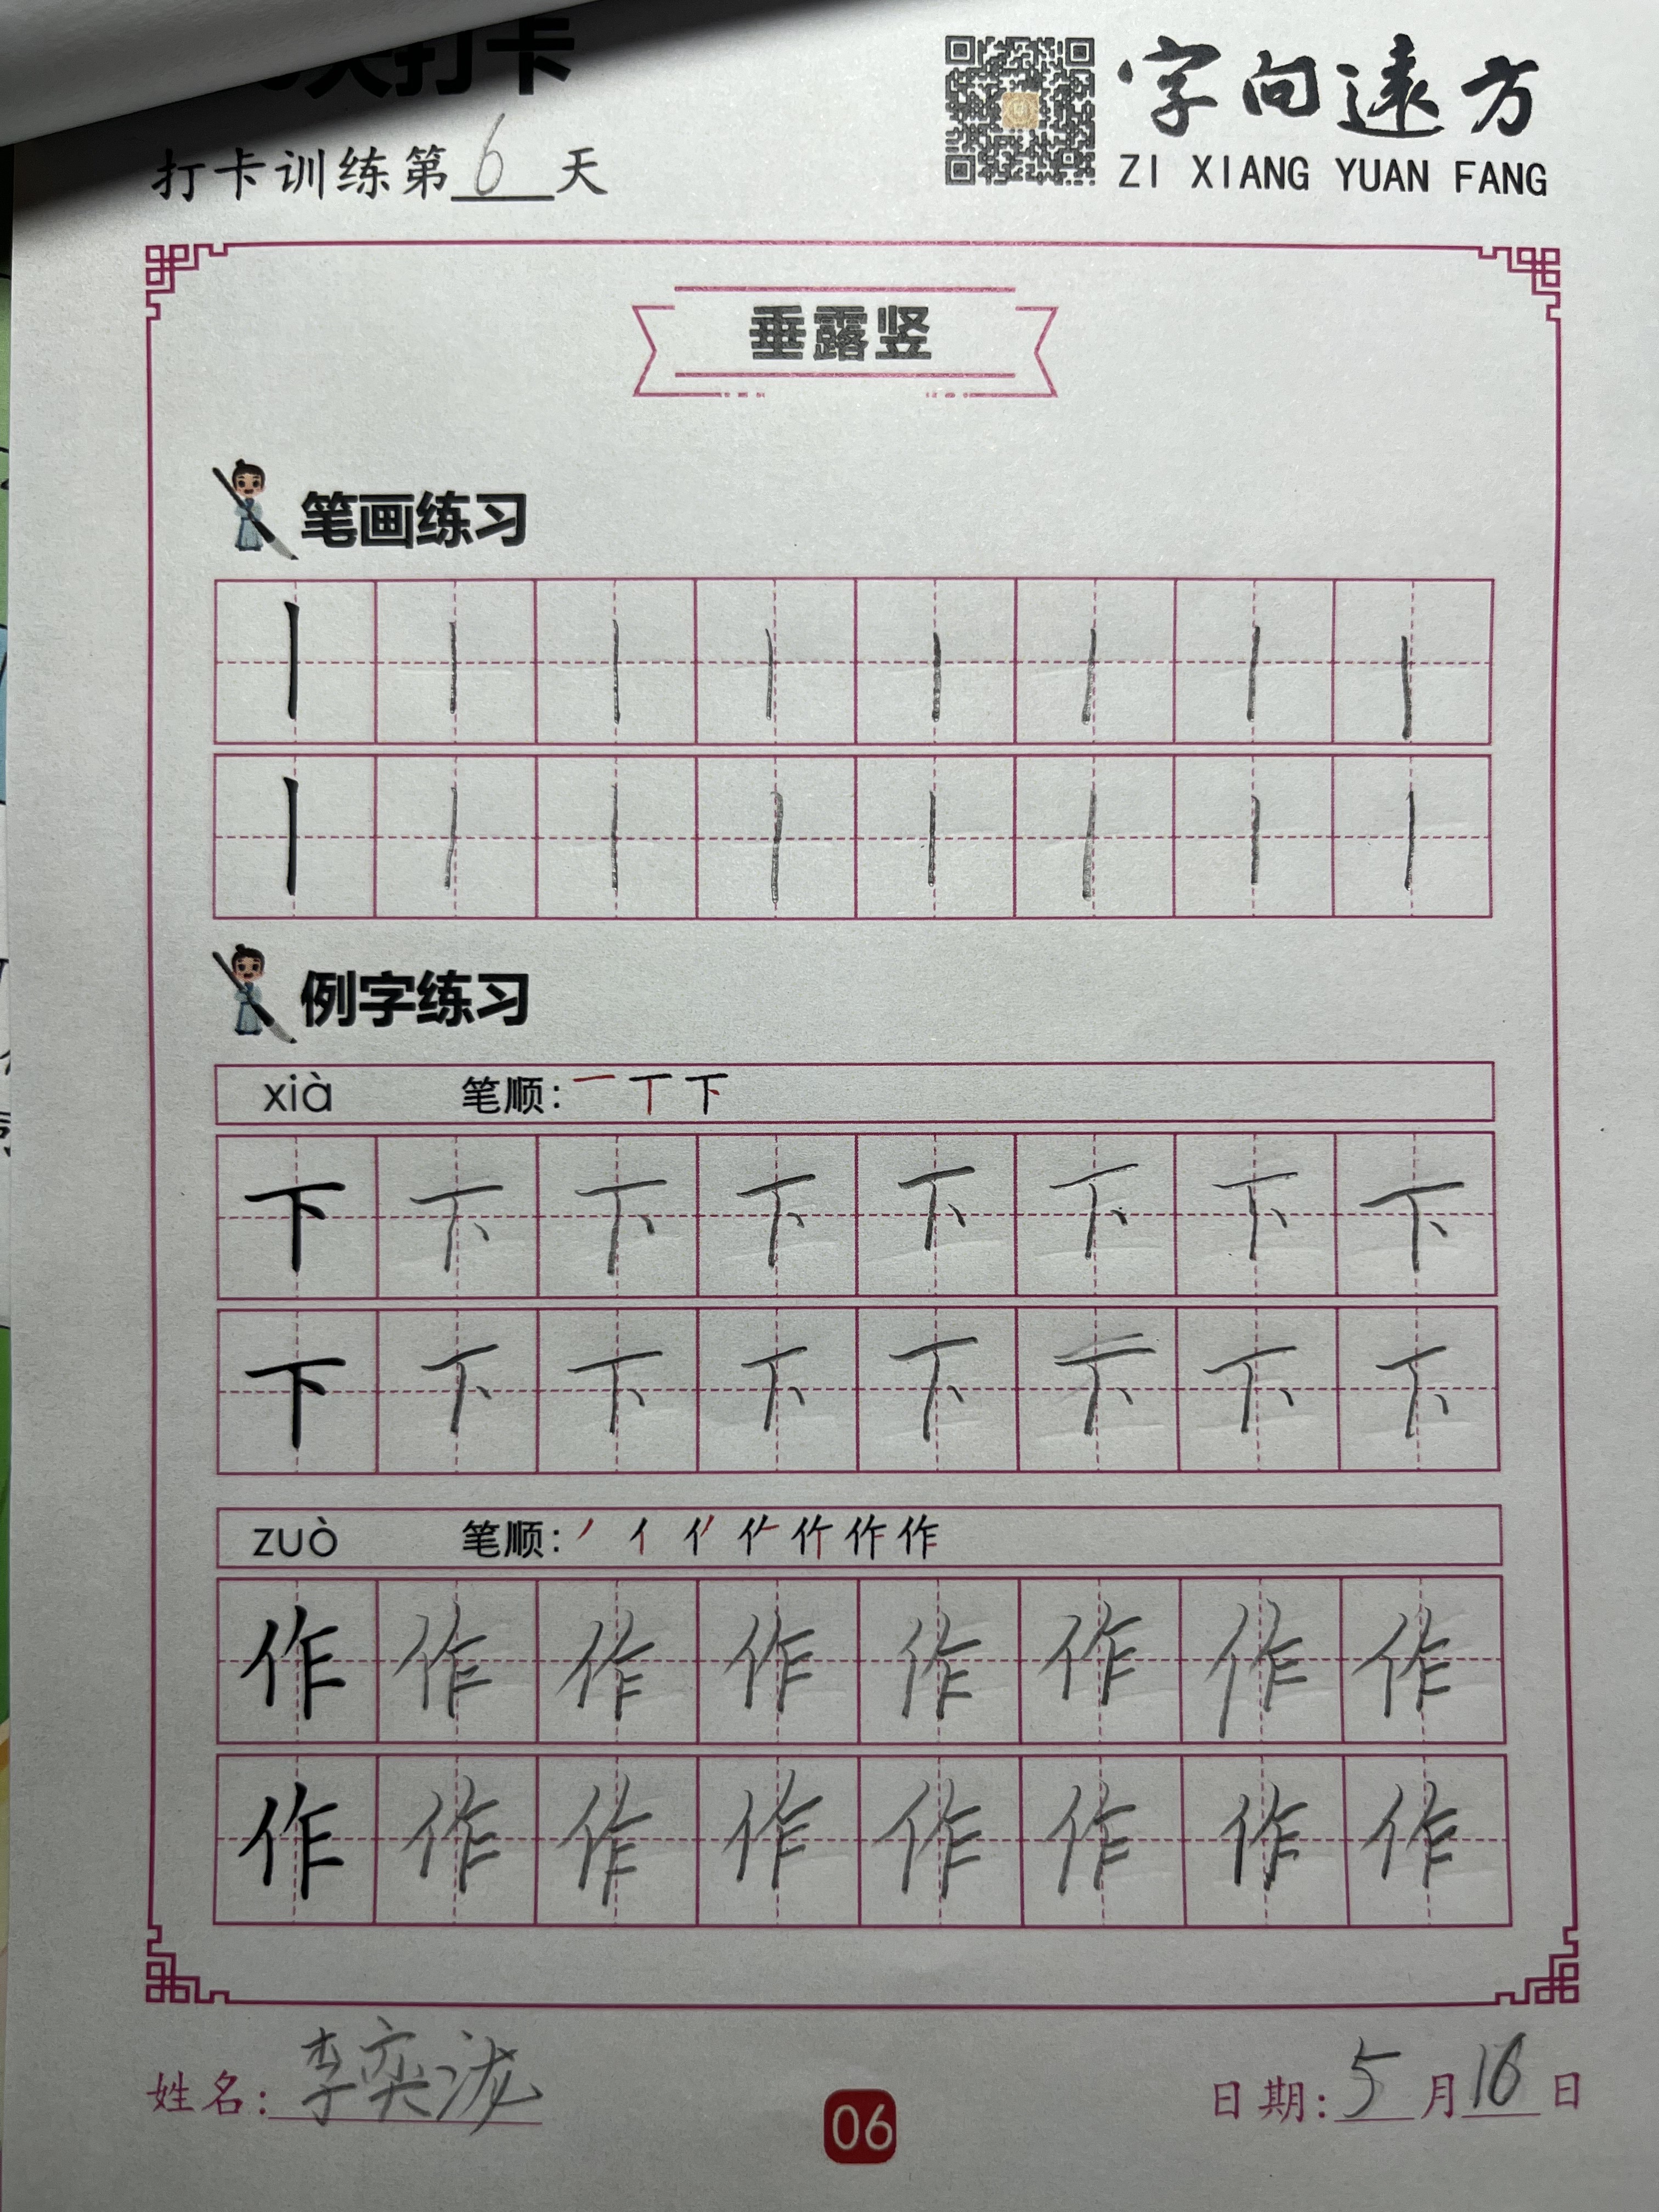 天打卡
字向远方
打卡训练第6天
ZI XIANG YUAN FANG
垂露竖
笔画练习
丨 丨 丨 丨 丨 丨 丨 丨
丨 丨 丨 丨 丨 丨 丨 丨
例字练习
xià 笔顺: 一 丅 下
下 下 下 下 下 下 下 下
下 下 下 下 下 下 下 下
zuò 笔顺: 作
作 作 作 作 作 作 作 作
作 作 作 作 作 作 作 作
姓名: 李奕泷
06
日期: 5月16日